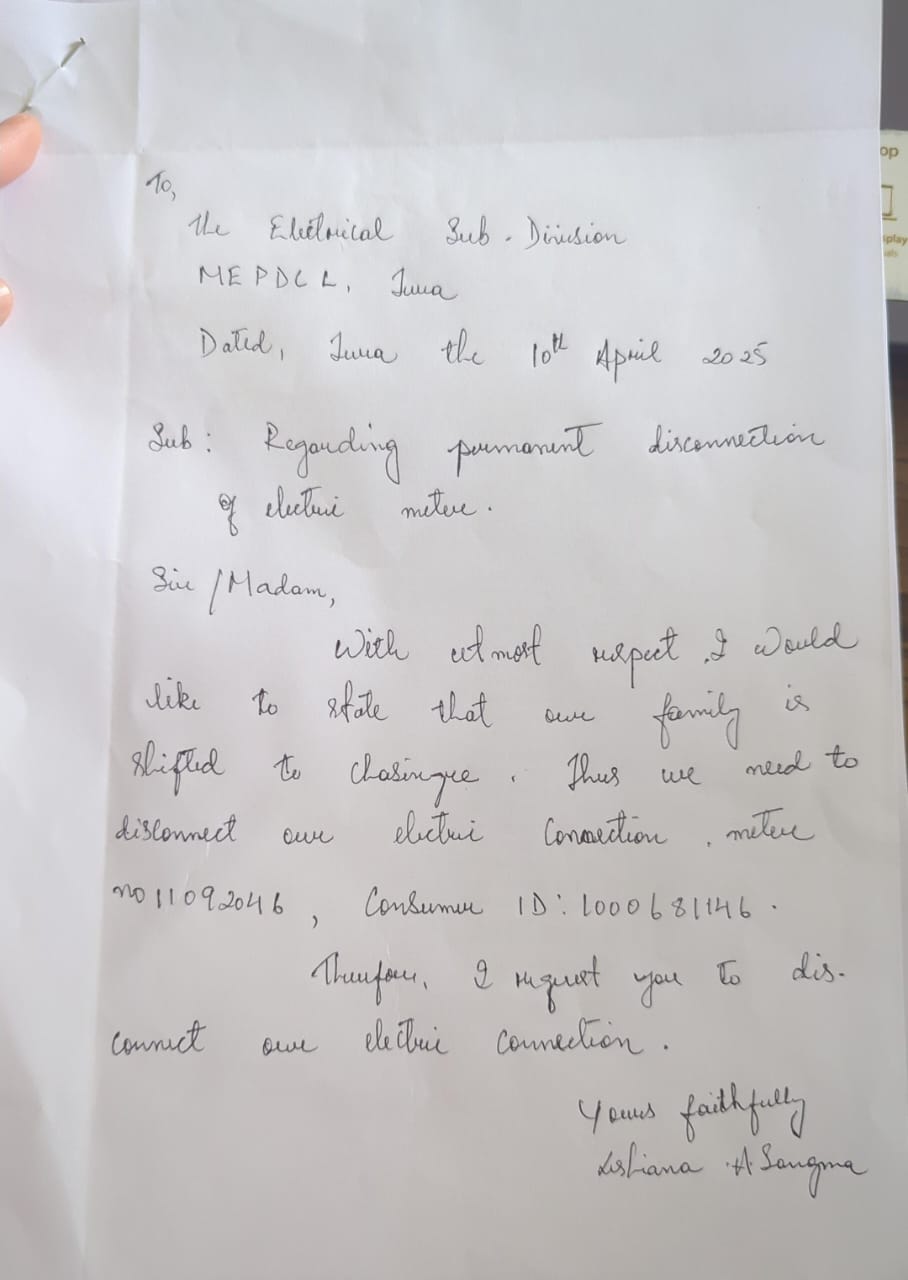 To,
The Electrical Sub-Division
MEPDCL, Tura
Dated, Tura the 10th April 2025
Sub: Regarding permanent disconnection
of electric meter.
Sir/Madam,
With utmost respect, I would
like to state that our family is
shifted to Chasingre. Thus we need to
disconnect our electric connection, meter
no 11092046, Consumer ID: 1000681146.
Therefore, I request you to dis-
connect our electric connection.
Yours faithfully
A Sangma
op
splay